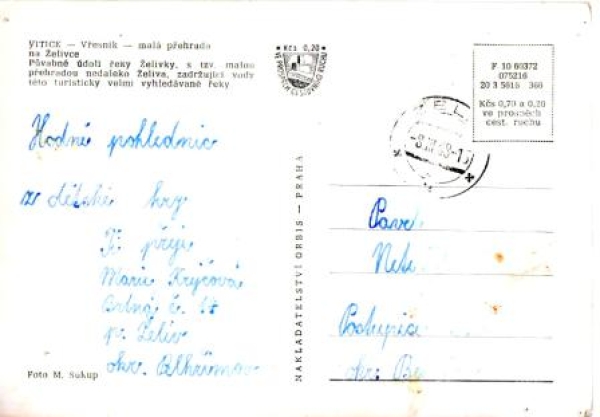 VITICE — Vřesník — malá přehrada
na Želivce
Půvabné údolí řeky Želivky, s tzv. malou
přehradou nedaleko Želiva, zadržující vody
této turisticky velmi vyhledávané řeky
Kčs 0,20
F 10 60372
075216
20 3 5615 360
Kčs 0,70 a 0,20
ve prospěch
cest. ruchu
Hodně pohlednic
z dětské hry
Ti přeje
Marie Krýčová
Brtná č. 18
p. Želiv
okr. Pelhřimov
NAKLADATELSTVÍ ORBIS — PRAHA
Postupice
okr. Be
Foto M. Sukup